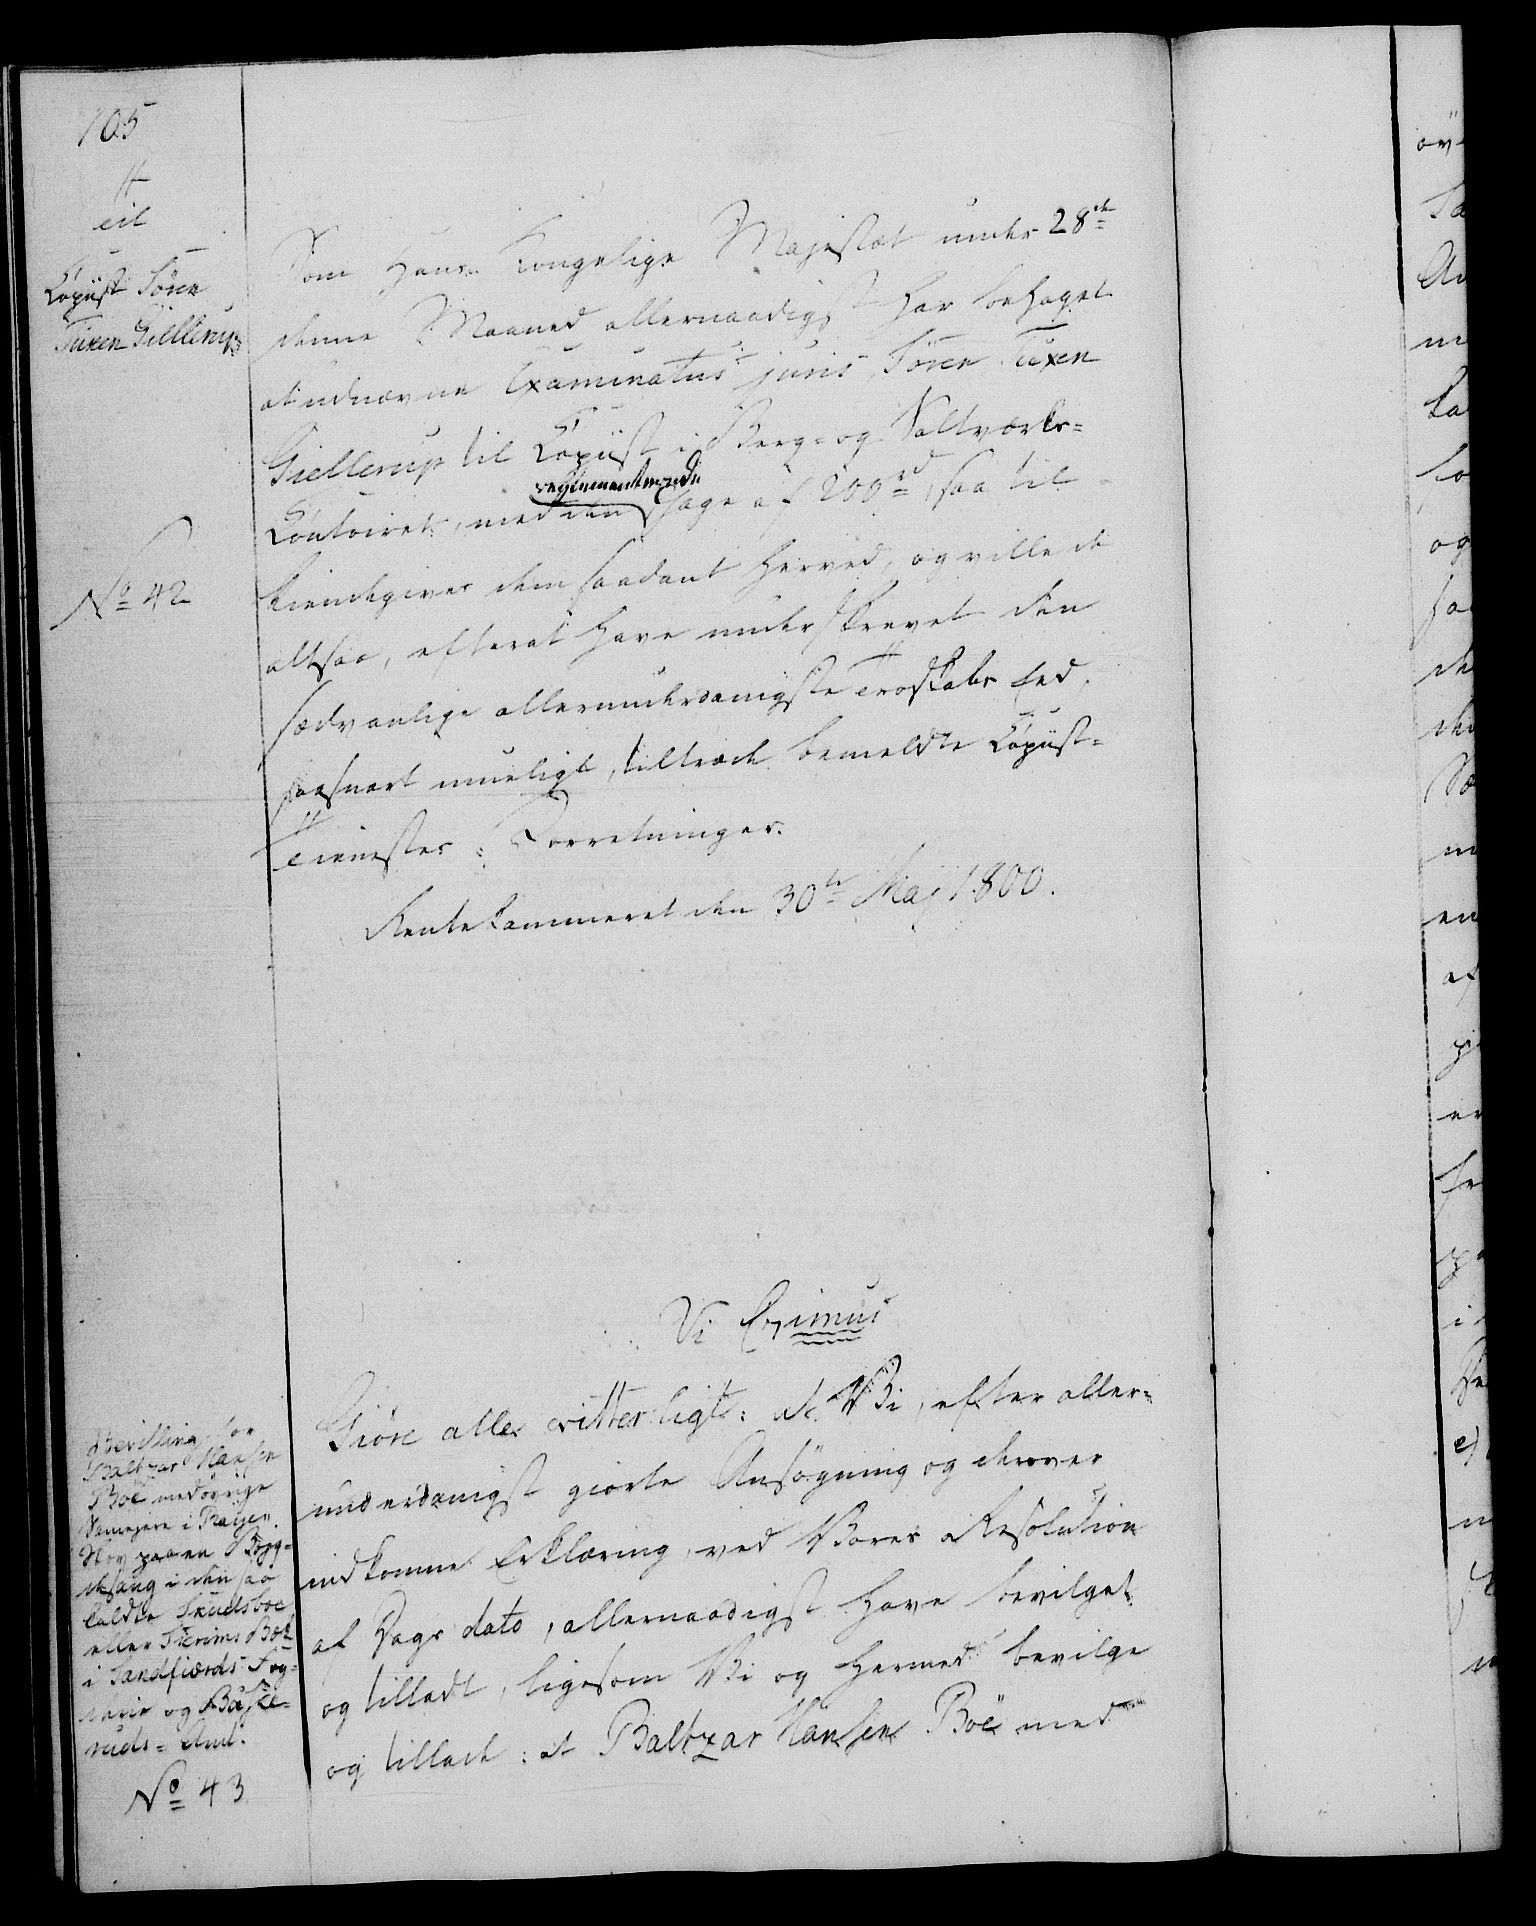 105
Til
Copiist Søren
Tuxen Giellerup
Som Hans Kongelige Majestæt under 28de
denne Maaned allernaadigst har behaget
at udnævne Examinatus juris Søren Tuxen
Giellerup til Copiist i Berg- og Saltværks-
reglementerede
Contoiret, med den Gage af 200 rd, saa til-
kiendegives dem saadant herved, og ville de
altsaa, efterat have underskrevet den
sædvanlige allerunderdanigste Troskabs Eed,
saasnart mueligt, tiltræde bemeldte Copiist-
Tienestes Forretninger.
Rentekammeret den 30te Maj 1800.
No 42
Vi Christian
Giøre alle vitterligt: at Vi, efter aller-
underdanigst giorte Ansøgning og derover
indkomne Erklæring, ved Vores Resolution
af Dags dato, allernaadigst have bevilget
og tilladt, ligesom Vi og hermed bevilge
og tillade: at Baltzar Hansen Böe med
Bevilling for
Baltzar Hansen
Böe med øvrige
Participere i
paa en Byg-
desaug i den saa
kaldte Skudsboe
eller
i Sandsværds Fog-
derie og Buske-
ruds Amt.
No 43